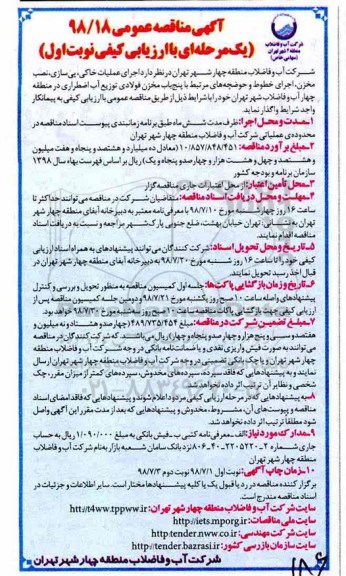 شرکت آب و فاضلاب
منطقه ۴ شهر تهران
(سهامی خاص)
آگهی مناقصه عمومی ۹۸/۱۸
(یک مرحله‌ای با ارزیابی کیفی نوبت اول)
شرکت آب و فاضلاب منطقه چهار شهر تهران در نظر دارد اجرای عملیات خاکی، پی‌سازی، نصب
مخزن، اجرای خطوط و حوضچه‌های مرتبط با پنج‌باب مخزن فولادی توزیع آب اضطراری در منطقه
چهار آب و فاضلاب شهر تهران خود را با شرایط ذیل از طریق مناقصه عمومی با ارزیابی کیفی به پیمانکار
واجد شرایط واگذار نماید.
۱ـ مدت و محل اجرا: ظرف مدت شش ماه طبق برنامه زمانبندی پیوست اسناد مناقصه در
محدوده‌ی عملیاتی شرکت آب و فاضلاب منطقه چهار شهر تهران
۲ـ مبلغ برآورد مناقصه: ۱۰/۸۵۷/۸۴۸/۴۵۱ (معادل ده میلیارد و هشتصد و پنجاه و هفت میلیون
و هشتصد و چهل و هشت هزار و چهارصد و پنجاه و یک) ریال بر اساس فهرست بهاء سال ۱۳۹۸
سازمان برنامه و بودجه کشور
۳ـ محل تأمین اعتبار: از محل اعتبارات جاری مناقصه‌گزار
۴ـ مهلت و محل دریافت اسناد مناقصه: متقاضیان شرکت در مناقصه می‌توانند حداکثر تا
ساعت ۱۶ روز چهارشنبه مورخ ۹۸/۷/۱۰ با معرفی‌نامه معتبر به دبیرخانه آبفای منطقه چهار شهر
تهران به نشانی: تهران خیابان بهشت، ضلع جنوبی پارک‌شهر مراجعه و نسبت به دریافت اسناد
مناقصه اقدام نمایند.
۵ـ تاریخ و محل تحویل اسناد: شرکت کنندگان می‌توانند پیشنهادهای به همراه اسناد ارزیابی
کیفی خود را تا ساعت ۱۶ روز شنبه مورخ ۹۸/۷/۲۰ به دبیرخانه آبفای منطقه چهار شهر تهران در
قبال اخذ رسید تحویل نمایند.
۶ـ تاریخ و زمان بازگشایی پاکت‌ها: جلسه اول کمیسیون مناقصه به منظور تحویل و بررسی و کنترل
پیشنهادهای واصله ساعت ۱۰ صبح روز یکشنبه مورخ ۹۸/۷/۲۱ و دومین جلسه کمیسیون مناقصه پس از
ارزیابی کیفی جهت بازگشایی پاکات مناقصه ساعت ۱۰ صبح روز سه‌شنبه مورخ ۹۸/۷/۳۰ خواهد بود.
۷ـ مبلغ تضمین شرکت در مناقصه: مبلغ ۴۸۹/۷۳۵/۴۵۴ (چهارصد و هشتاد و نه میلیون و
هفتصد و سی و پنج هزار و چهارصد و پنجاه و چهار) ریال می‌باشد، که شرکت کنندگان در مناقصه
می‌توانند به صورت فیش واریزی نقدی و یا ضمانت‌نامه بانکی در وجه شرکت آب و فاضلاب منطقه
چهار شهر تهران و یا چک بانکی تضمینی در وجه شرکت آب و فاضلاب منطقه چهار شهر تهران ارسال
نمایند و به پیشنهادهایی که فاقد سپرده، سپرده‌های مخدوش، سپرده‌های کمتر از میزان مقرر، چک
شخصی و نظایر آن ترتیب اثر داده نخواهد شد.
۸ـ به پیشنهادهایی که در مرحله ارزیابی کیفی مردود اعلام شوند و پیشنهادهایی که فاقد امضای اسناد
مناقصه و پیوست‌های آن، مشروط، مخدوش و پیشنهادهایی که بعد از مدت مقرر این آگهی واصل
شود مطلقاً ترتیب اثر داده نخواهد شد.
۹ـ مدارک مورد نیاز: الف‌ـ معرفی‌نامه کتبی ب‌ـ فیش بانکی به مبلغ ۱/۰۹۰/۰۰۰ ریال به حساب
منطقه چهار شهر تهران
۱۰ـ زمان چاپ آگهی: نوبت اول ۹۸/۷/۱ نوبت دوم ۹۸/۷/۳
برگزار کننده مناقصه در رد یا قبول یک یا کلیه پیشنهادها مختار است. سایر اطلاعات و جزئیات در
اسناد مناقصه مندرج است.
سایت شرکت آب و فاضلاب منطقه چهار شهر تهران: htt://t4ww.tppww.ir
سایت ملی مناقصات: http://iets.mporg.ir
سایت شرکت مهندسی: http:tender.nww.co.ir
سایت سازمان بازرسی کشور: http://tender.bazrasi.ir
شرکت آب و فاضلاب منطقه چهار شهر تهران